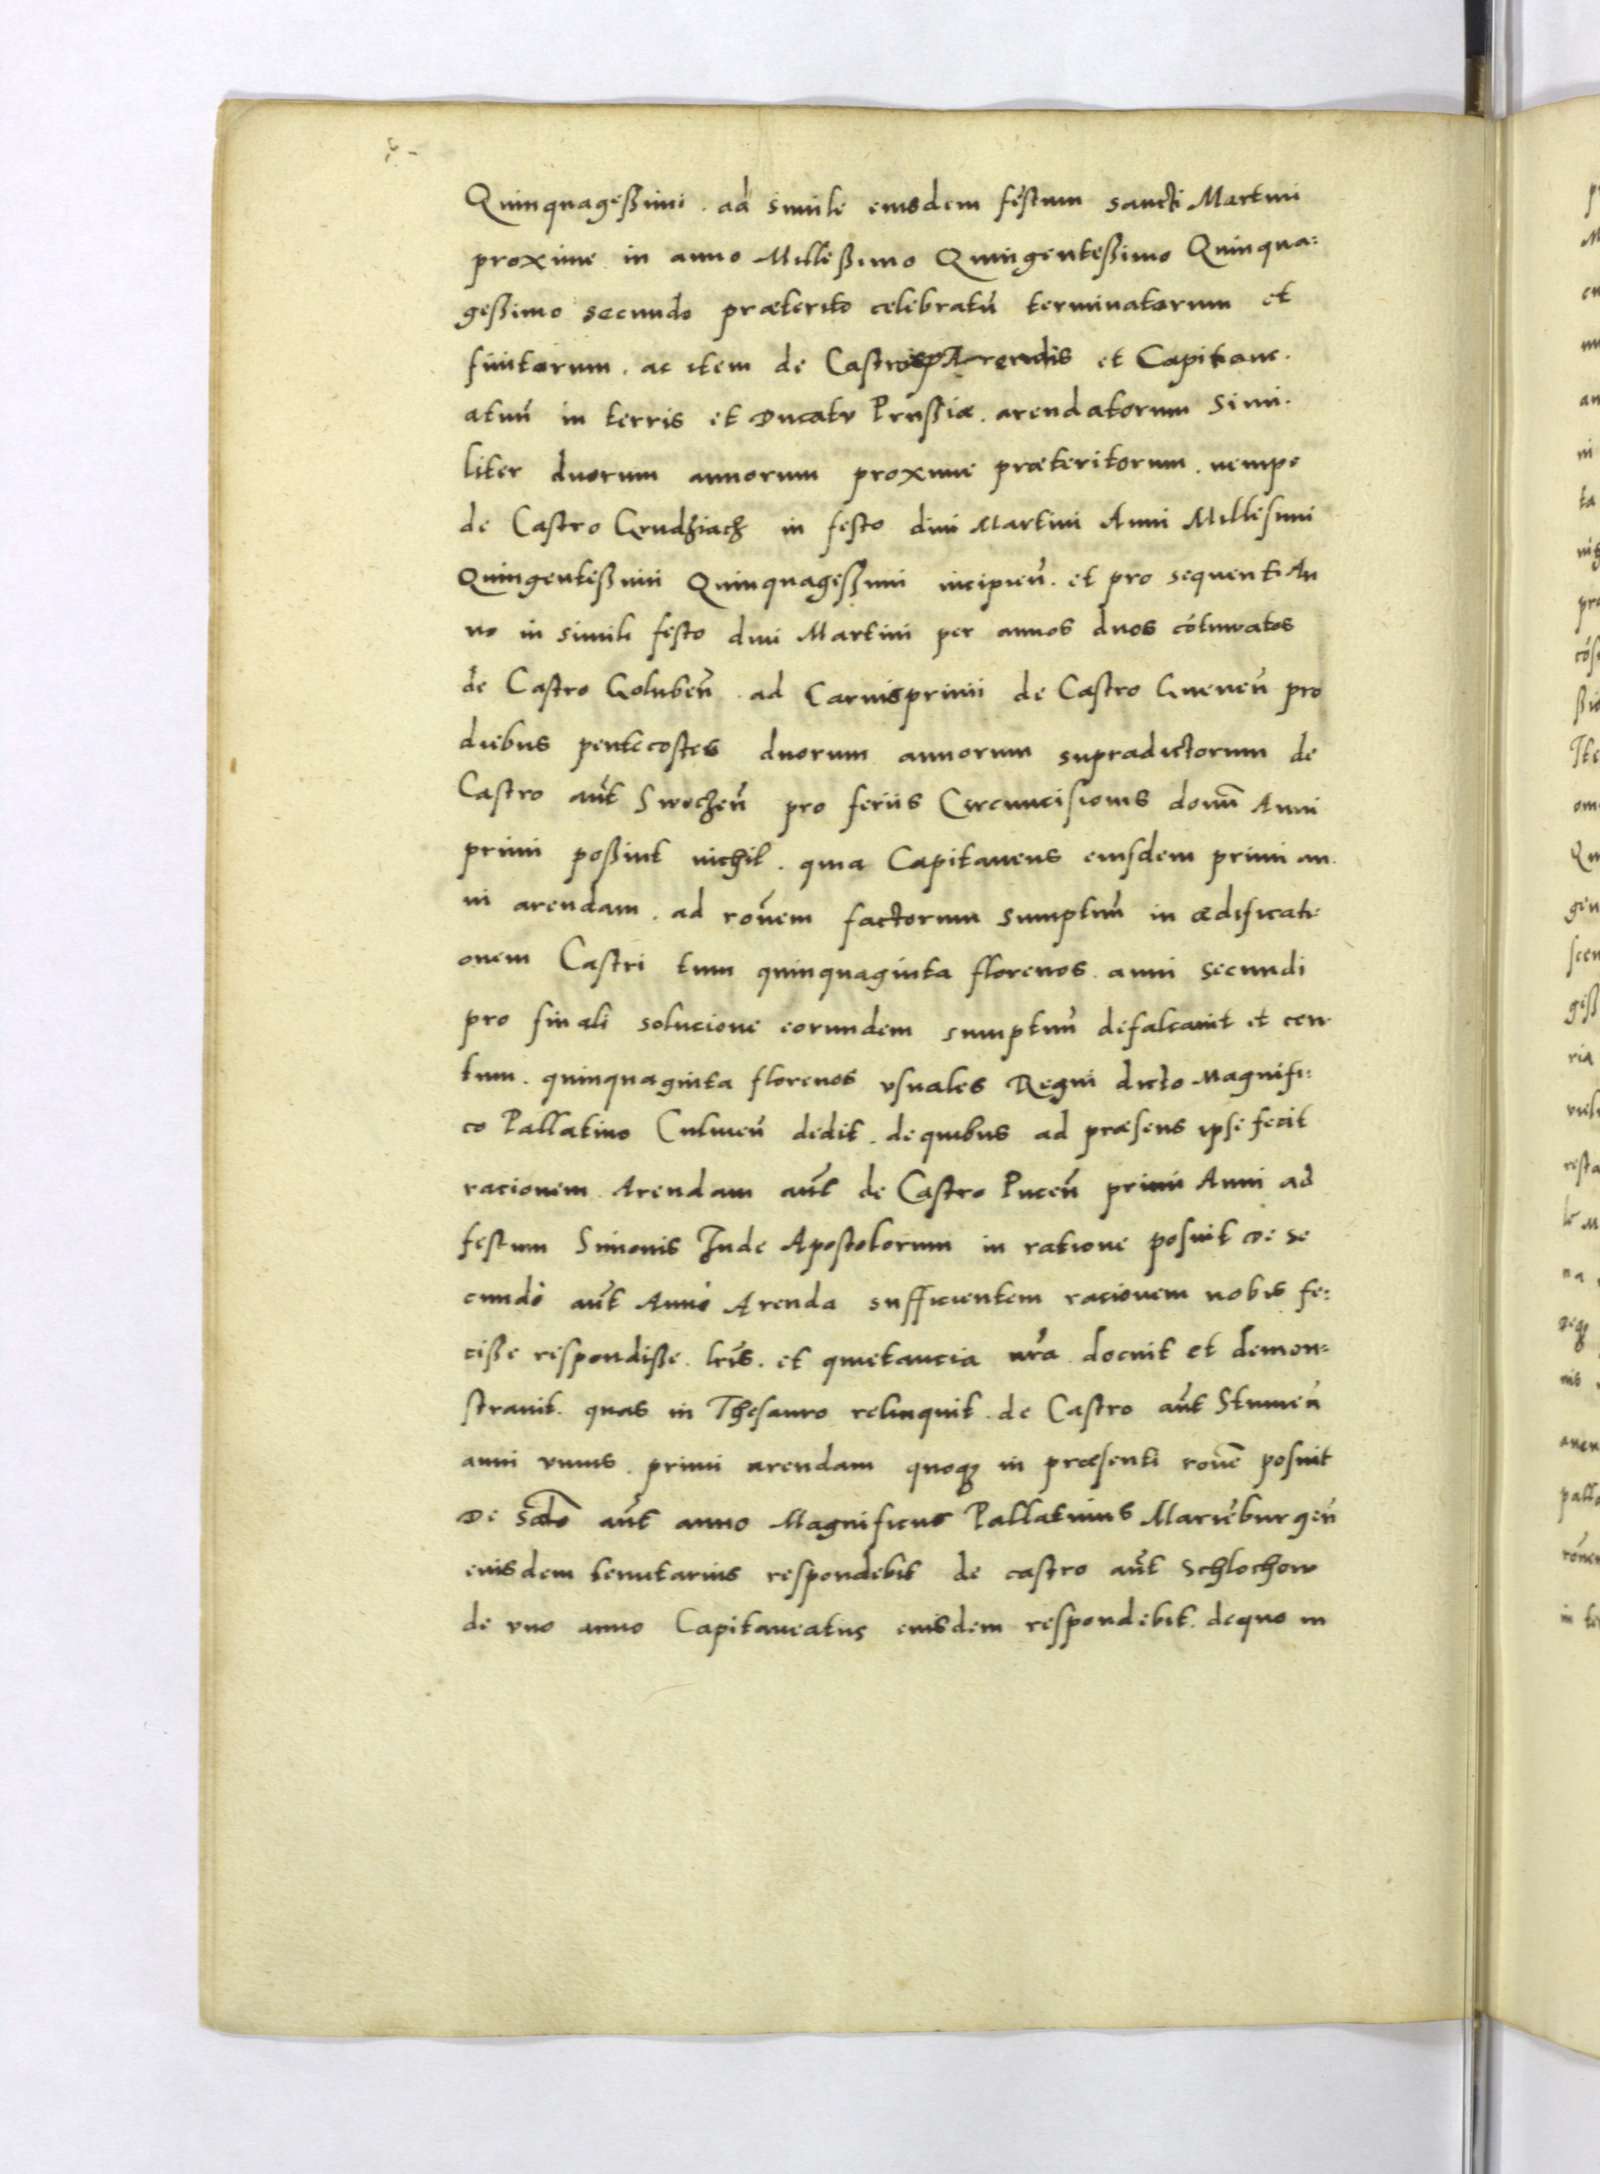 Quinquageßimi . ad simile eiusdem festum sancti Martini
proxime in anno Milleßimo Quingenteßimo Quinqua:
geßimo secundo præterito celebratũ terminatorum et
finitorum . ac item de Castris Arendis et Capitane.
atuũ in terris et Ducatu Prußiæ . arendatorum Simi.
liter duorum annorum proxime præteritorum . nempe
de Castro Grudziacz in festo diui Martini Anni Millesimi
Quingenteßimi Quinquageßimi incipieñ . et pro sequenti An
no in simili festo diui Martini per annos duos cõtinuatos
de Castro Golubeñ . ad Carnisprivii de Castro Gneueñ pro
diebus pentecostes duorum annorum supradictorum de
Castro aũt Swecheñ pro feriis Circuncisionis domĩ Anni
primi poßint nichil . quia Capitaneus eiusdem primi an.
ni arendam . ad roñem factorum sumptuũ in ædificati
onem Castri tum quinquaginta florenos . anni secundi
pro finali solucione eorundem sumptuũ defalcauit et cen
tum . quinquaginta florenos usuales Regni dicto Magnifi:
co Pallatino Culmeñ dedit . de quibus ad præsens ipse fecit
racionem . Arendam aũt de Castro Puceñ primi Anni ad
festum Simonis Jude Apostolorum in ratione posuit De se
cundo aũt Anno Arenda sufficientem racionem nobis fe:
ciße respondiße . lrĩs . et quietancia nr̃a docuit et demon:
strauit . quas in Thesauro relinquit . de Castro aũt Stumeñ
anni unius . primi arendam quoqꝫ in præsenti roñe posuit
De sc̃do aũt anno Magnificus Pallatinus Marieburgeñ
eiusdem tenutarius respondebit de castro aũt Schlochow
de uno anno Capitaneatus eiusdem respondebit . de quo in